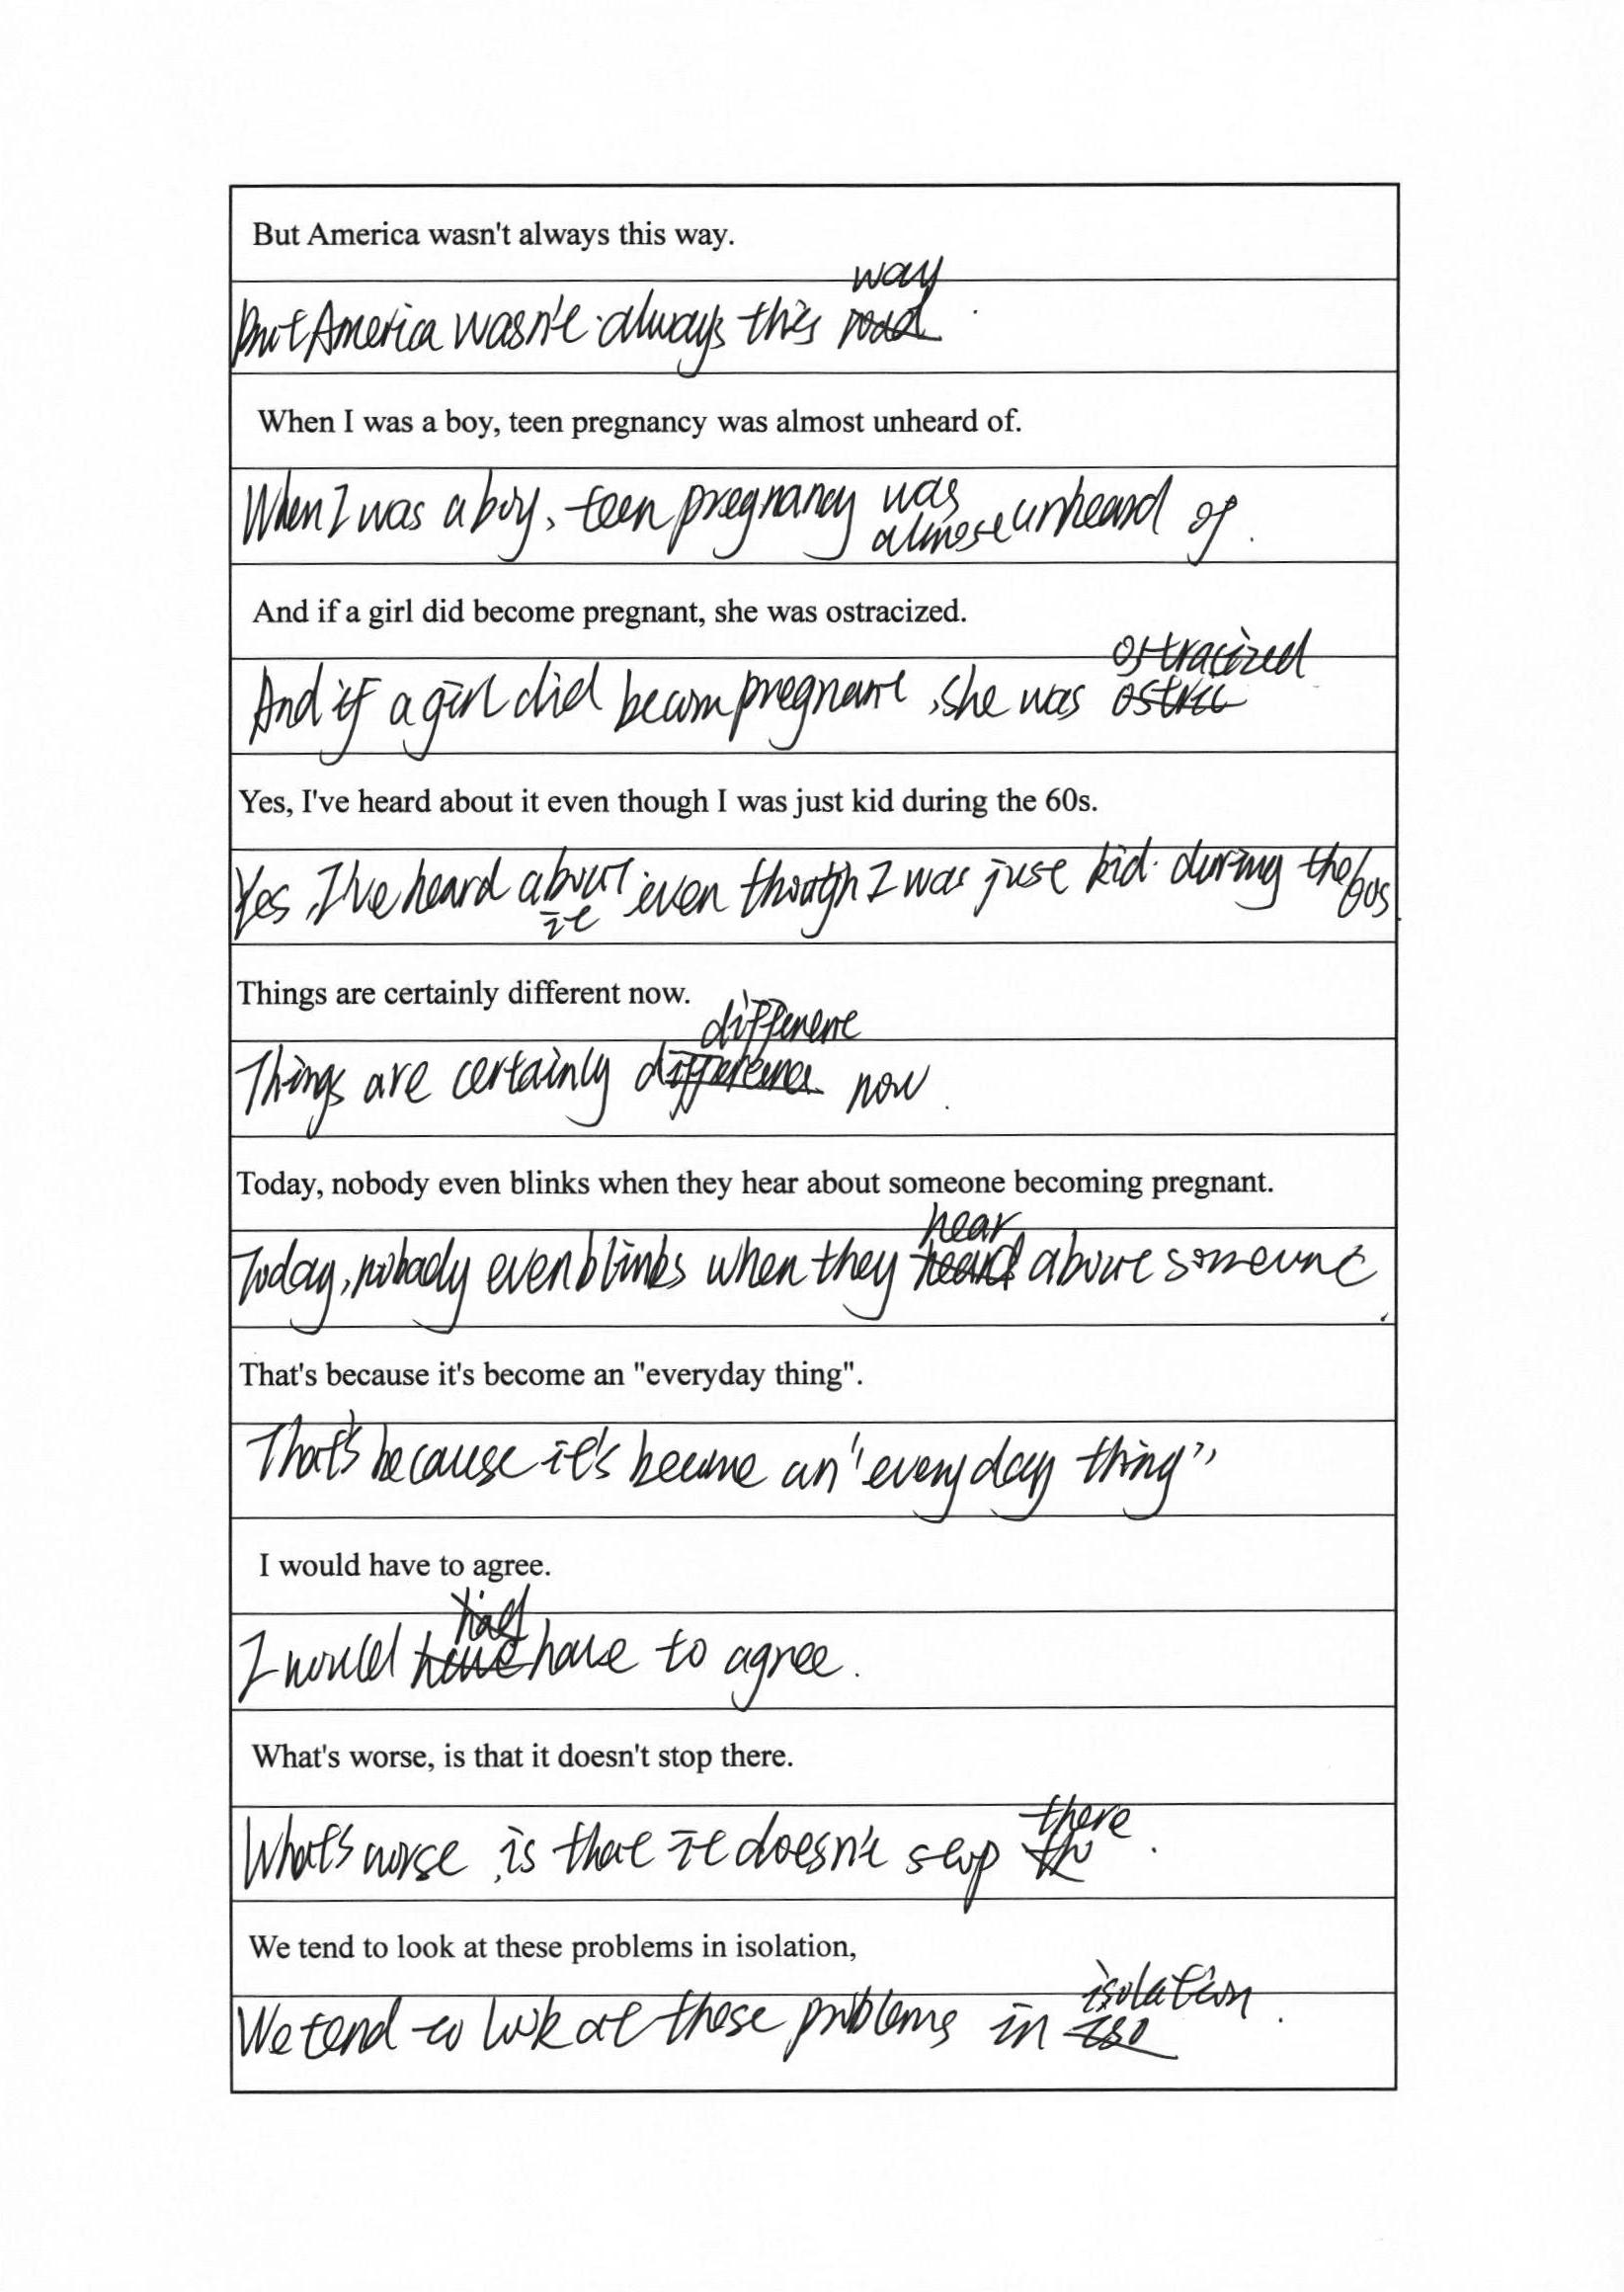 But America wasn't always this way.
But America wasn't always this way.
When I was a boy, teen pregnancy was almost unheard of.
When I was a boy, teen pregnancy was almost unheard of.
And if a girl did become pregnant, she was ostracized.
And if a girl did becom pregnant, she was ostracized
Yes, I've heard about it even though I was just kid during the 60s.
Yes, I've heard about it even though I was just kid during the 60s.
Things are certainly different now.
Things are certainly different now.
Today, nobody even blinks when they hear about someone becoming pregnant.
Today, nobody even blinks when they hear about someone.
That's because it's become an "everyday thing".
That's because it's become an "everyday thing"
I would have to agree.
I would have to agree.
What's worse, is that it doesn't stop there.
What's worse, is that it doesn't stop there.
We tend to look at these problems in isolation,
We tend to look at these problems in isolation.